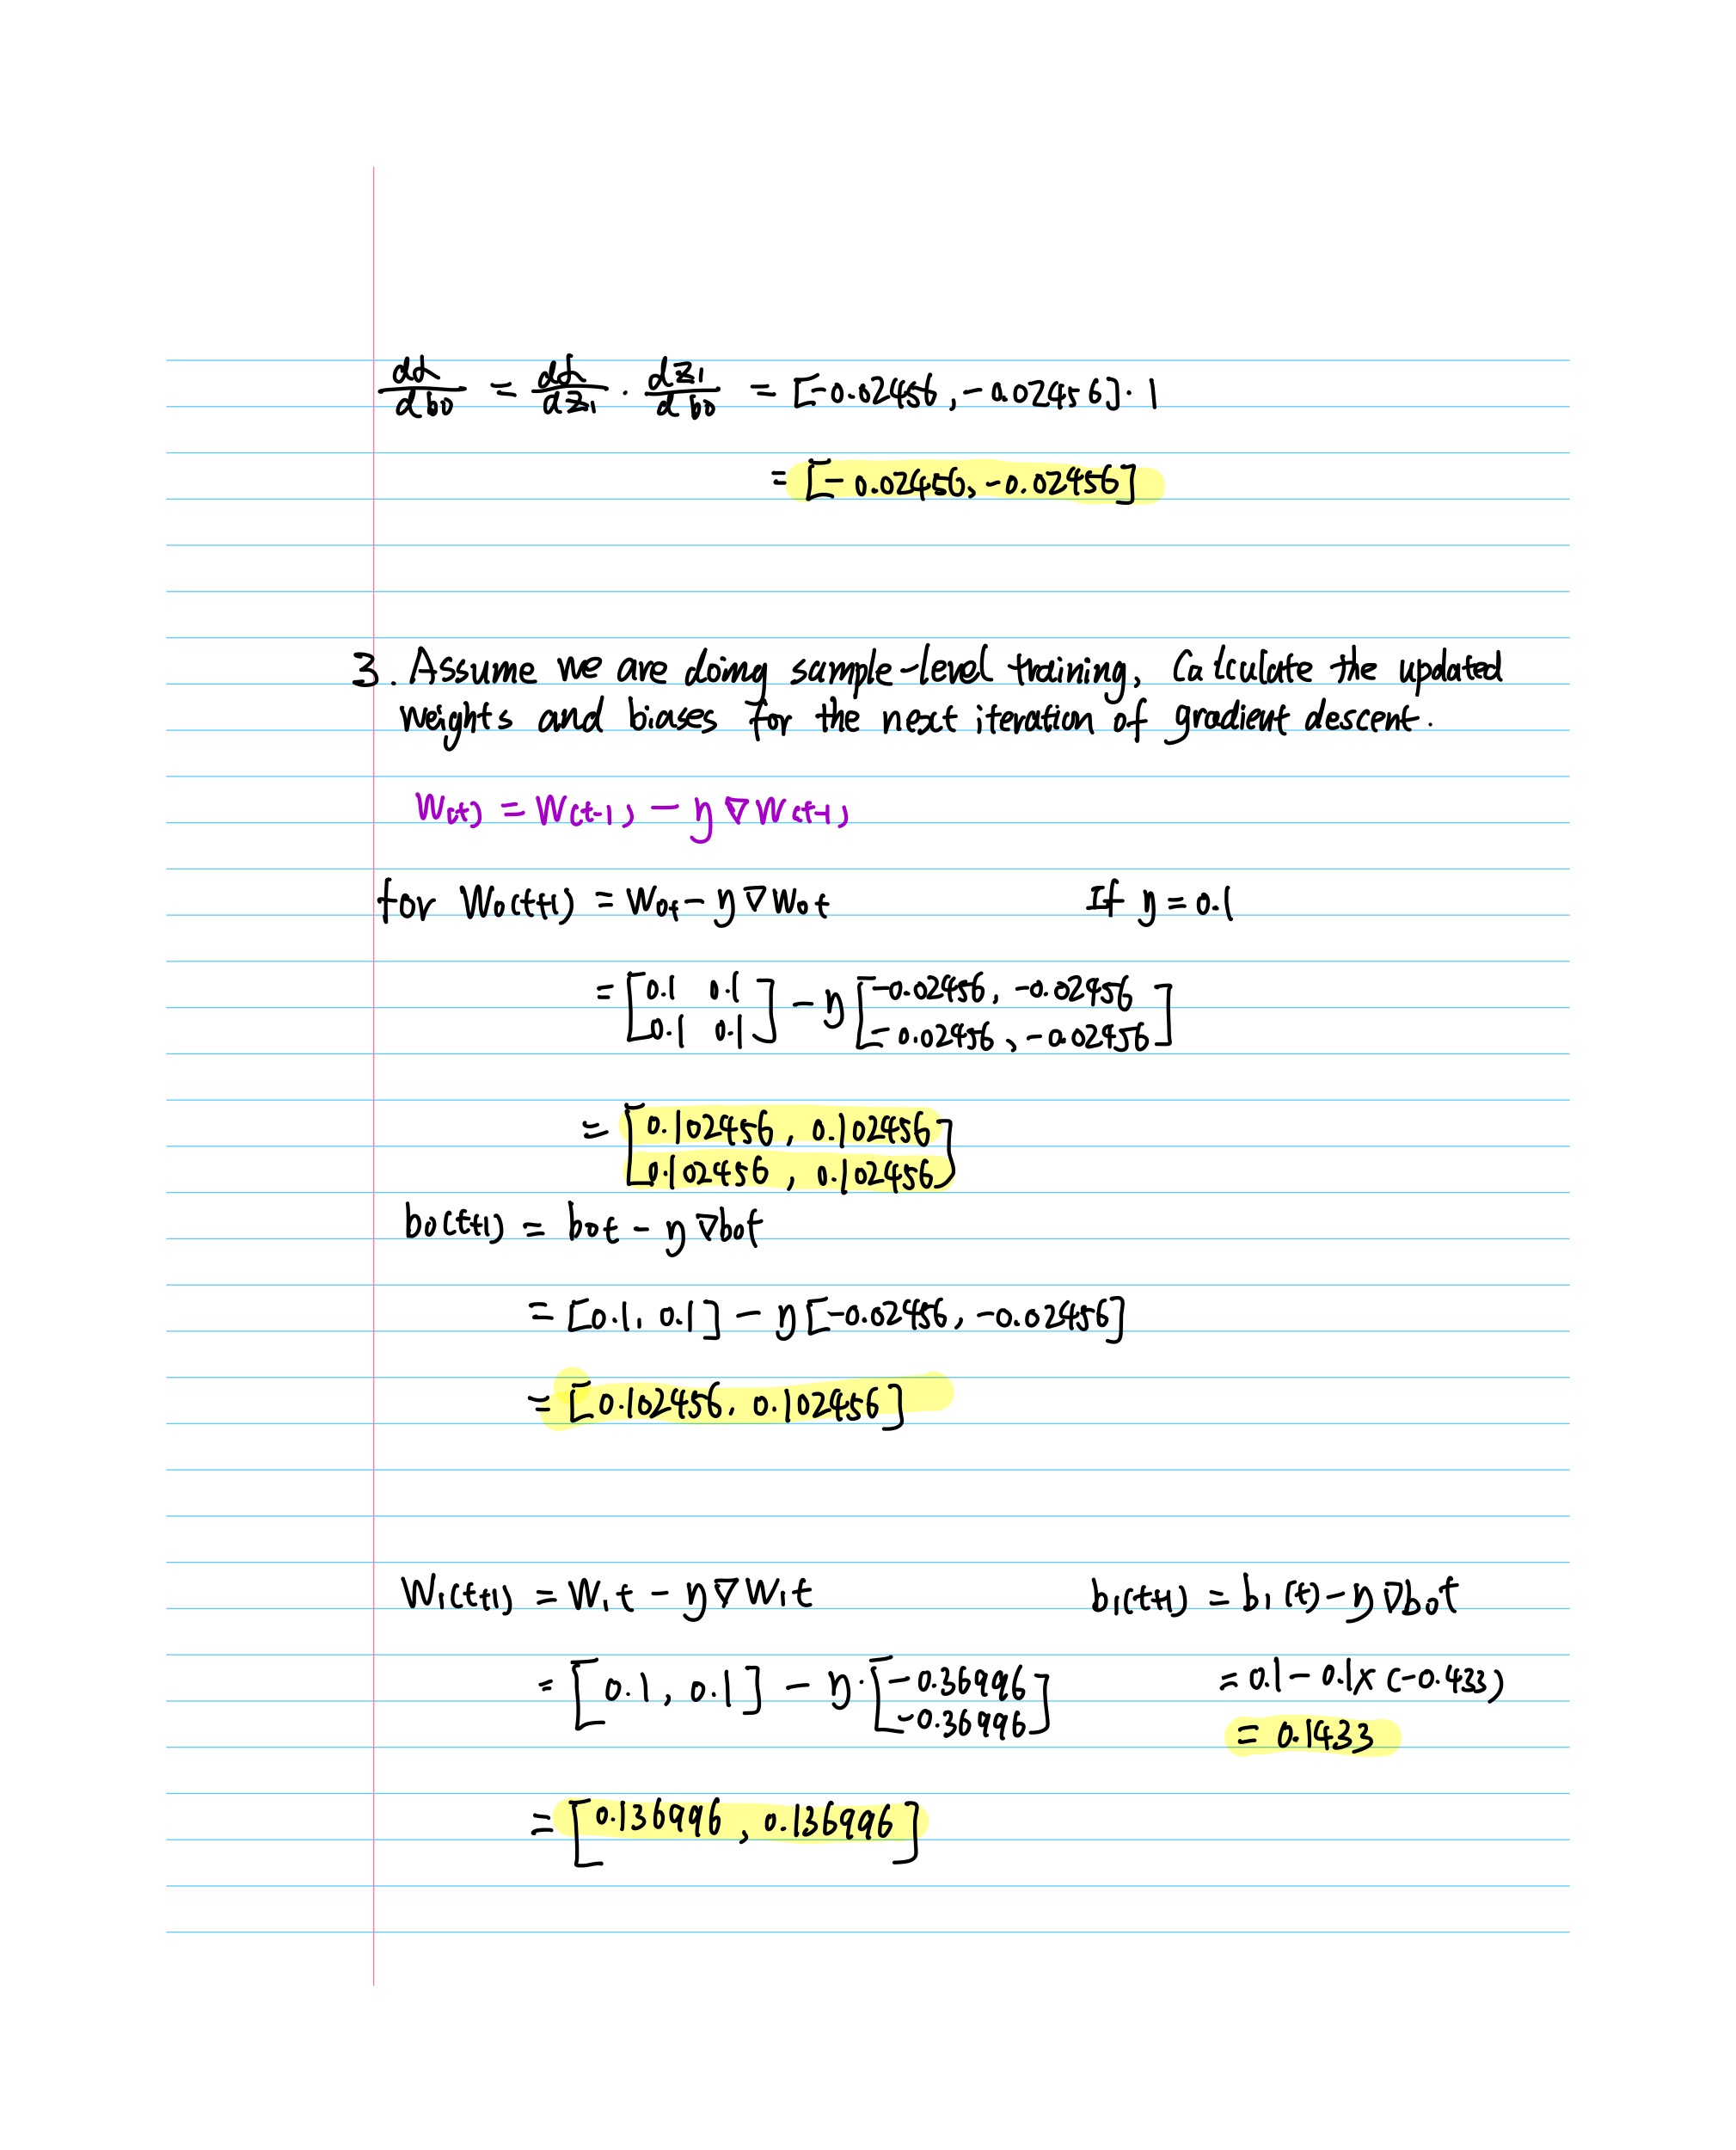 dL/db0 = dL/dz1 · dz1/db0 = [-0.02456, -0.02456] · 1
= [-0.02456, -0.02456]
3. Assume we are doing sample-level training, Calculate the updated
weights and biases for the next iteration of gradient descent.
W(t) = W(t-1) - η∇W(t-1)
for W0(t+1) = W0t - η∇W0t If η = 0.1
= [0.1 0.1
0.1 0.1] - η[-0.02456, -0.02456
-0.02456, -0.02456]
= [0.102456, 0.102456
0.102456, 0.102456]
b0(t+1) = b0t - η∇b0t
= [0.1, 0.1] - η[-0.02456, -0.02456]
= [0.102456, 0.102456]
W1(t+1) = W1t - η∇W1t b1(t+1) = b1(t) - η∇b0t
= [0.1, 0.1] - η·[-0.36996
-0.36996] = 0.1 - 0.1×(-0.433)
= 0.1433
= [0.136996, 0.136996]